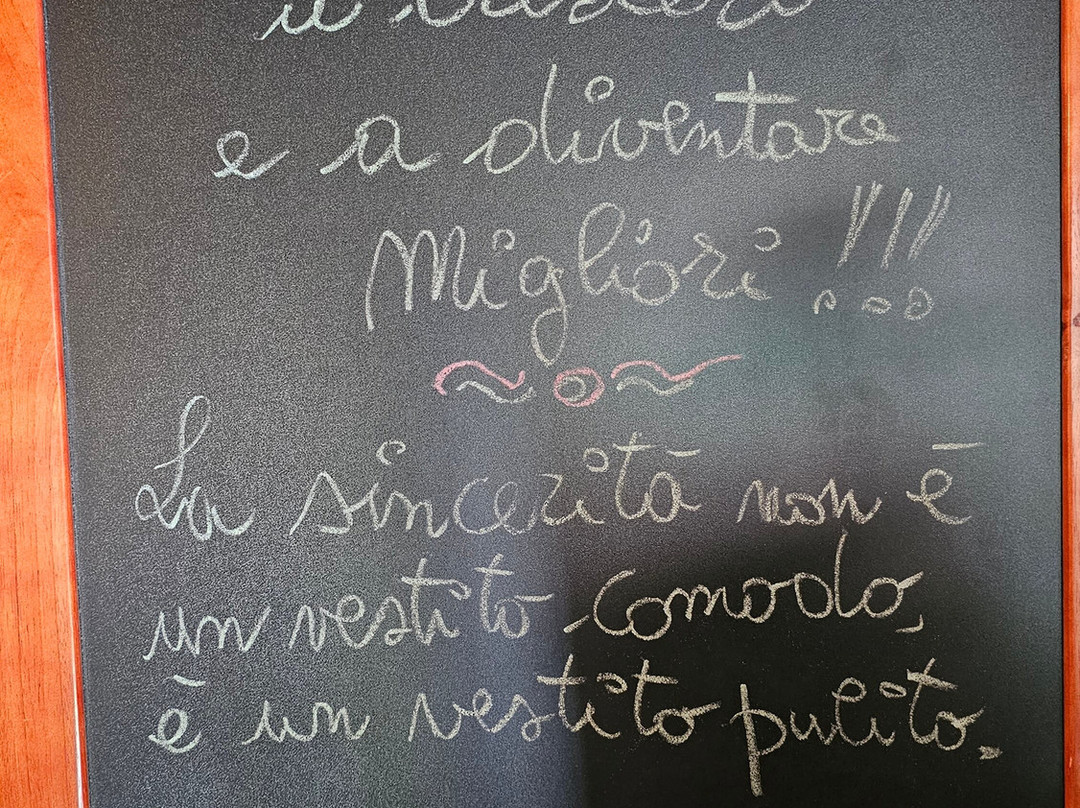 e a diventare
Migliori!!!
La sincerità non è
un vestito comodo,
è un vestito pulito.